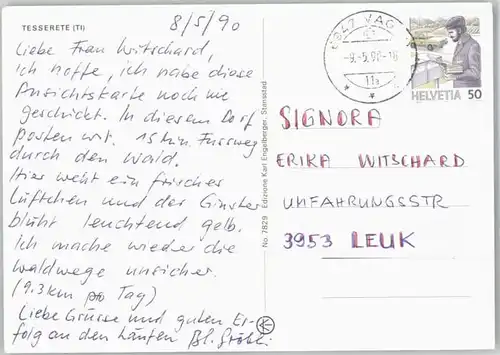 TESSERETE (TI)
8/5/90
Liebe Frau Witschard,
ich hoffe, ich habe diese
Ansichtskarte noch nie
geschickt. In diesem Dorf
posten wir. 15 Min. Fussweg
durch den Wald.
Hier weht ein frisches
Lüftchen und der Ginster
blüht leuchtend gelb.
Ich mache wieder die
Waldwege unsicher.
(9.3 km pro Tag)
Liebe Grüsse und guten Er-
folg an den Läufen
No 7829 Edizione Karl Engelberger, Stansstad
HELVETIA 50
SIGNORA
ERIKA WITSCHARD
UMFAHRUNGSSTR
3953 LEUK